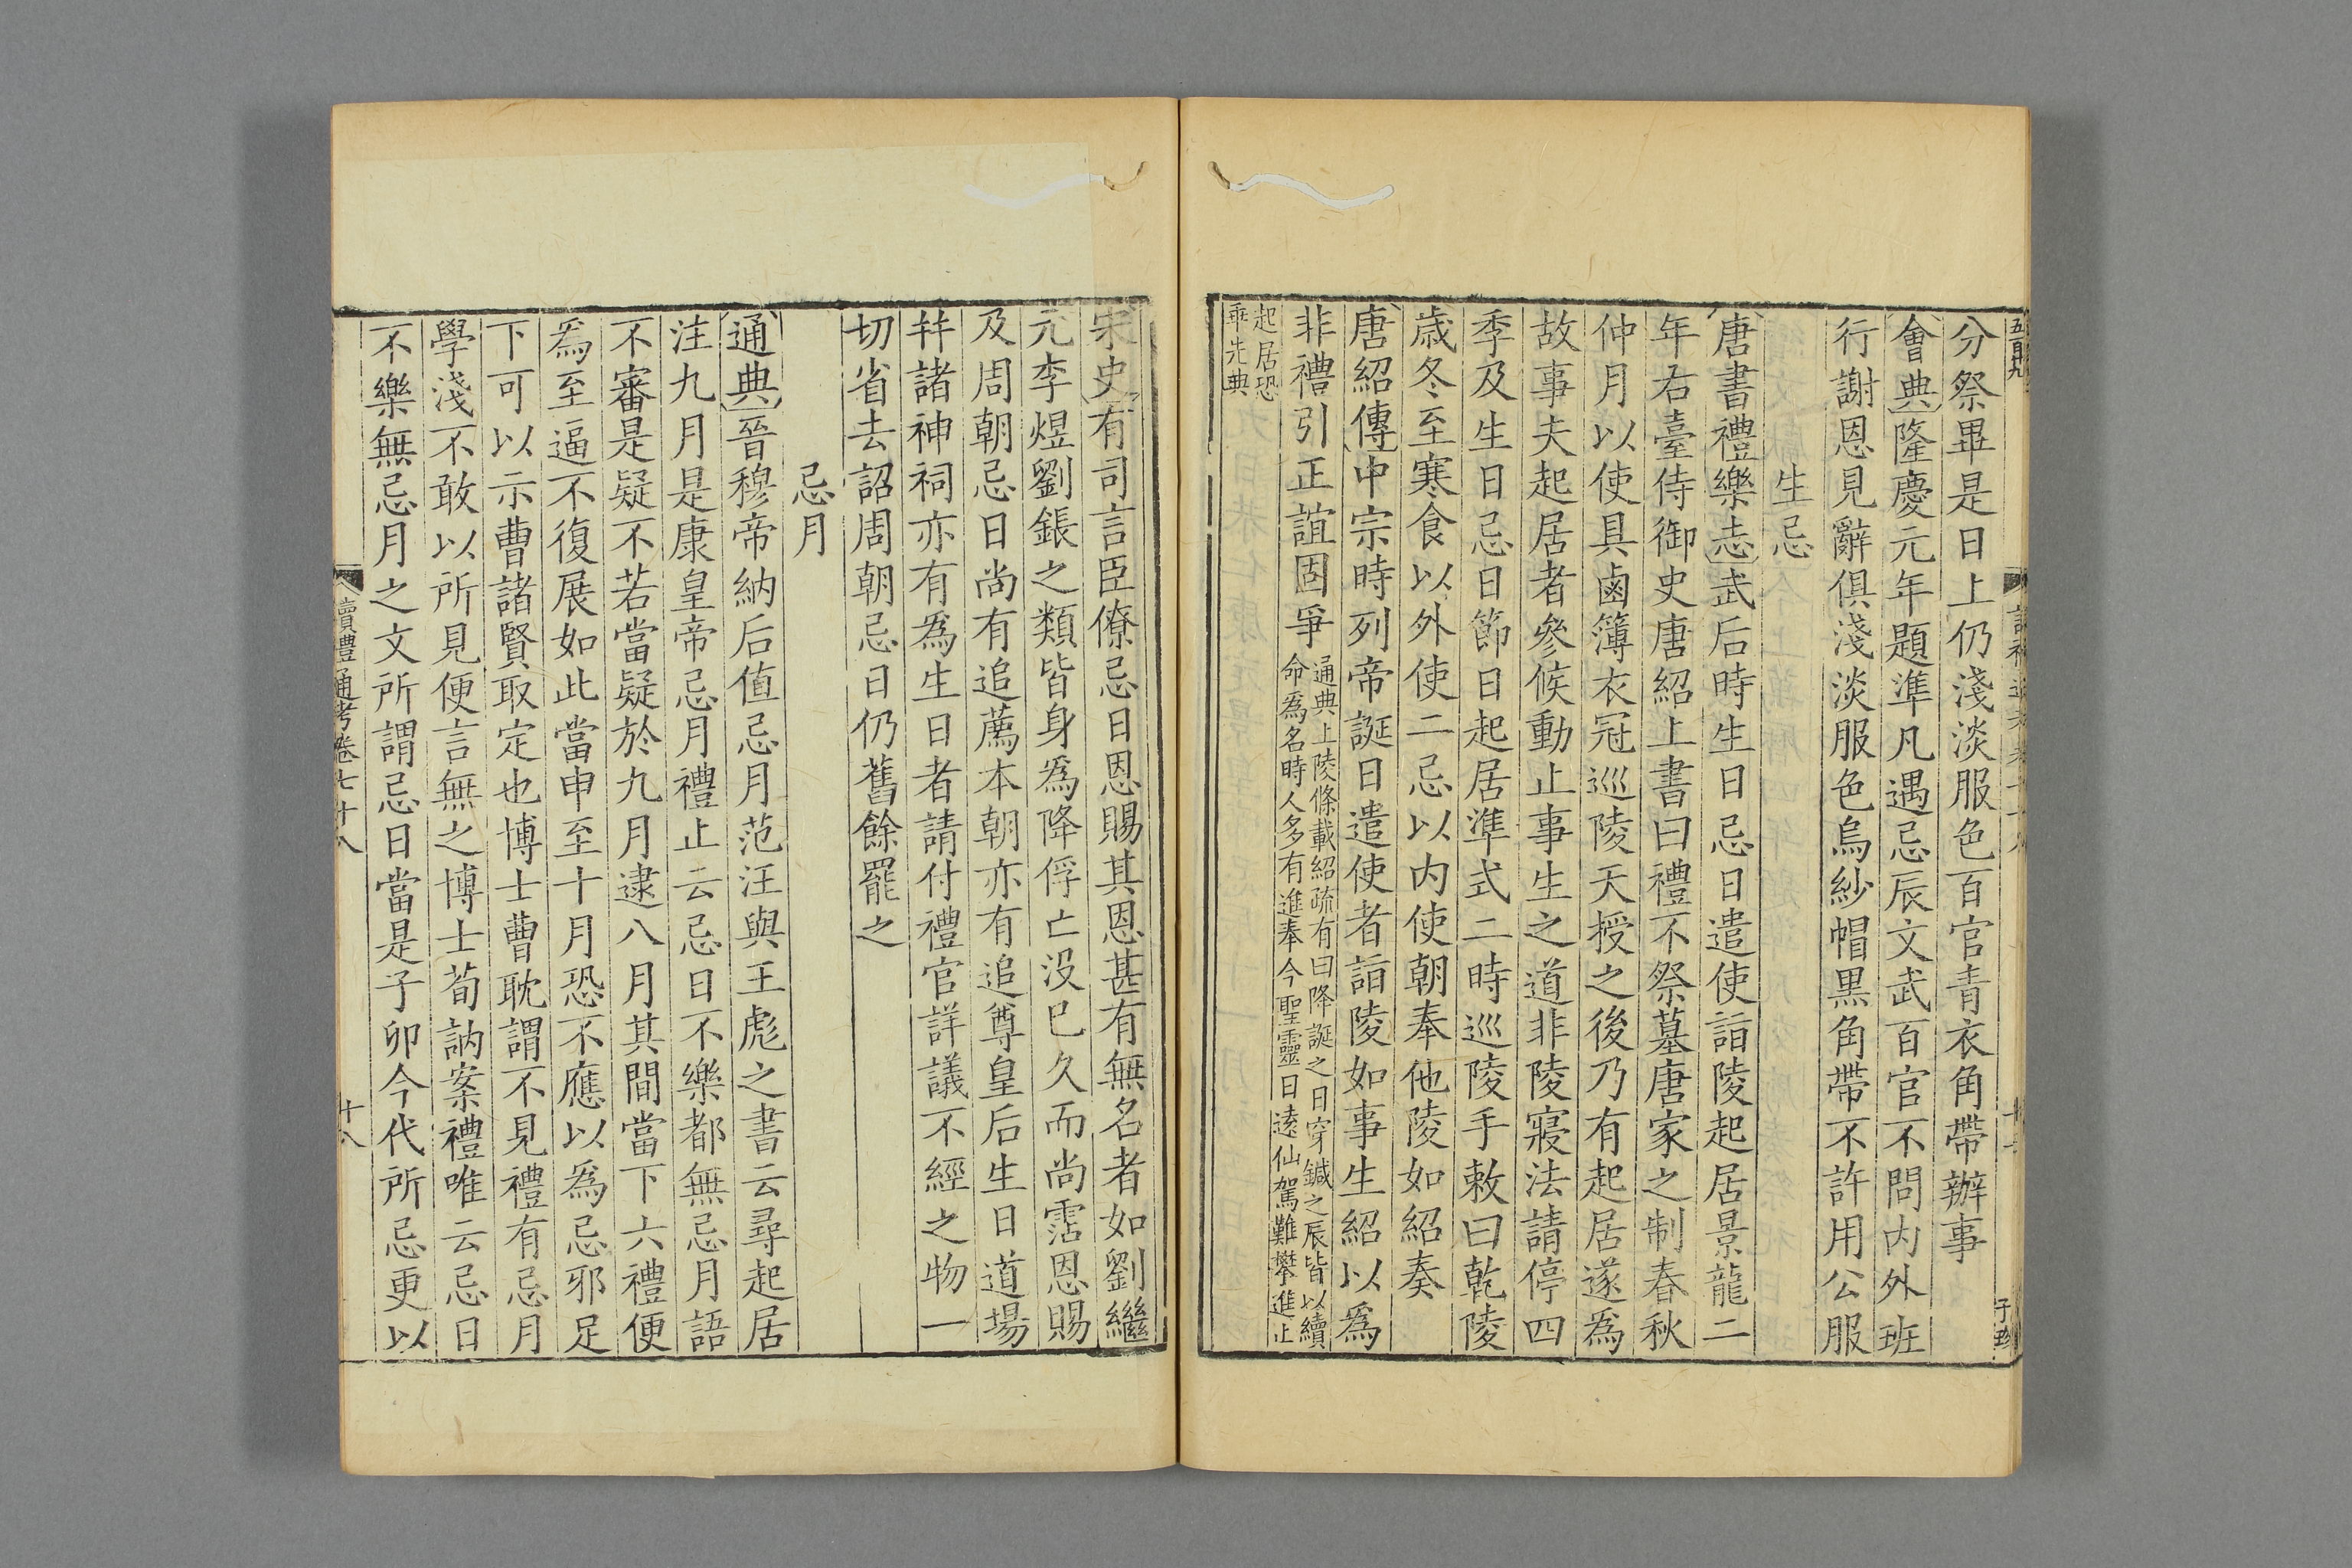 分祭畢是日上仍淺淡服色百官青衣角帶辦事
會典隆慶元年題準凡遇忌辰文武百官不問内外班
行謝恩見辭俱淺淡服色烏紗帽黑角帶不許用公服
生忌
唐書禮樂志武后時生日忌日遣使詣陵起居景龍二
年右臺侍御史唐紹上書曰禮不祭墓唐家之制春秋
仲月以使具鹵簿衣冠巡陵天授之後乃有起居遂爲
故事夫起居者參候動止事生之道非陵寢法請停四
季及生日忌日節日起居準式二時巡陵手敕曰乾陵
歲冬至寒食以外使二忌以内使朝奉他陵如紹奏
唐紹傳中宗時列帝誕日遣使者詣陵如事生紹以爲
非禮引正誼固爭
通典上陵條載紹疏有曰降誕之日穿鍼之辰皆以續
命爲名時人多有進奉今聖靈日逺仙駕難攀進止
起居恐
乖先典
子珍
宋史有司言臣僚忌日恩賜其恩甚有無名者如劉繼
元李煜劉鋹之類皆身爲降俘亡没已久而尚霑恩賜
及周朝忌日尚有追薦本朝亦有追尊皇后生日道場
并諸神祠亦有爲生日者請付禮官詳議不經之物一
切省去詔周朝忌日仍舊餘罷之
忌月
通典晉穆帝納后值忌月范汪與王彪之書云尋起居
注九月是康皇帝忌月禮止云忌日不樂都無忌月語
不審是疑不若當疑於九月逮八月其間當下六禮便
爲至逼不復展如此當申至十月恐不應以爲忌邪足
下可以示曹諸賢取定也博士曹耽謂不見禮有忌月
學淺不敢以所見便言無之博士荀訥案禮唯云忌日
不樂無忌月之文所謂忌日當是子卯今代所忌更以
讀禮通考卷七十八
十八